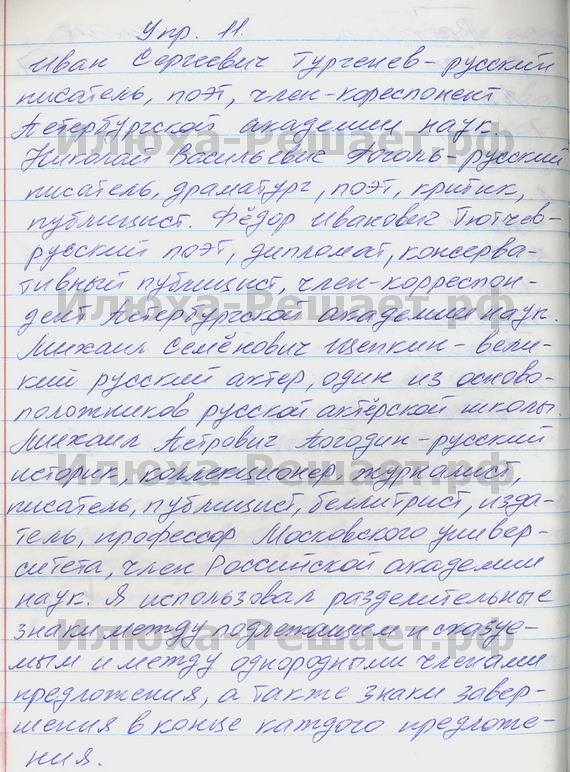 Упр. 11.
Иван Сергеевич Тургенев - русский
писатель, поэт, член-кореспонент
Петербургской академии наук.
Николай Васильевич Гоголь - русский
писатель, драматург, поэт, критик,
публицист. Фёдор Иванович Тютчев -
русский поэт, дипломат, консерва-
тивный публицист, член-корреспон-
дент Петербургской академии наук.
Михаил Семёнович Щепкин - вели-
кий русский актер, один из осново-
положников русской актёрской школы.
Михаил Петрович Погодин - русский
историк, коллекционер, журналист,
писатель, публицист, беллитрист, изда-
тель, профессор Московского универ-
ситета, член Российской академии
наук. Я использовал разделительные
знаки между подлежащим и сказуе-
мым и между однородными членами
предложения, а также знаки завер-
шения в конце каждого предложе-
ния.
Илюха-Решает.рф
Илюха-Решает.рф
Илюха-Решает.рф
Илюха-Решает.рф